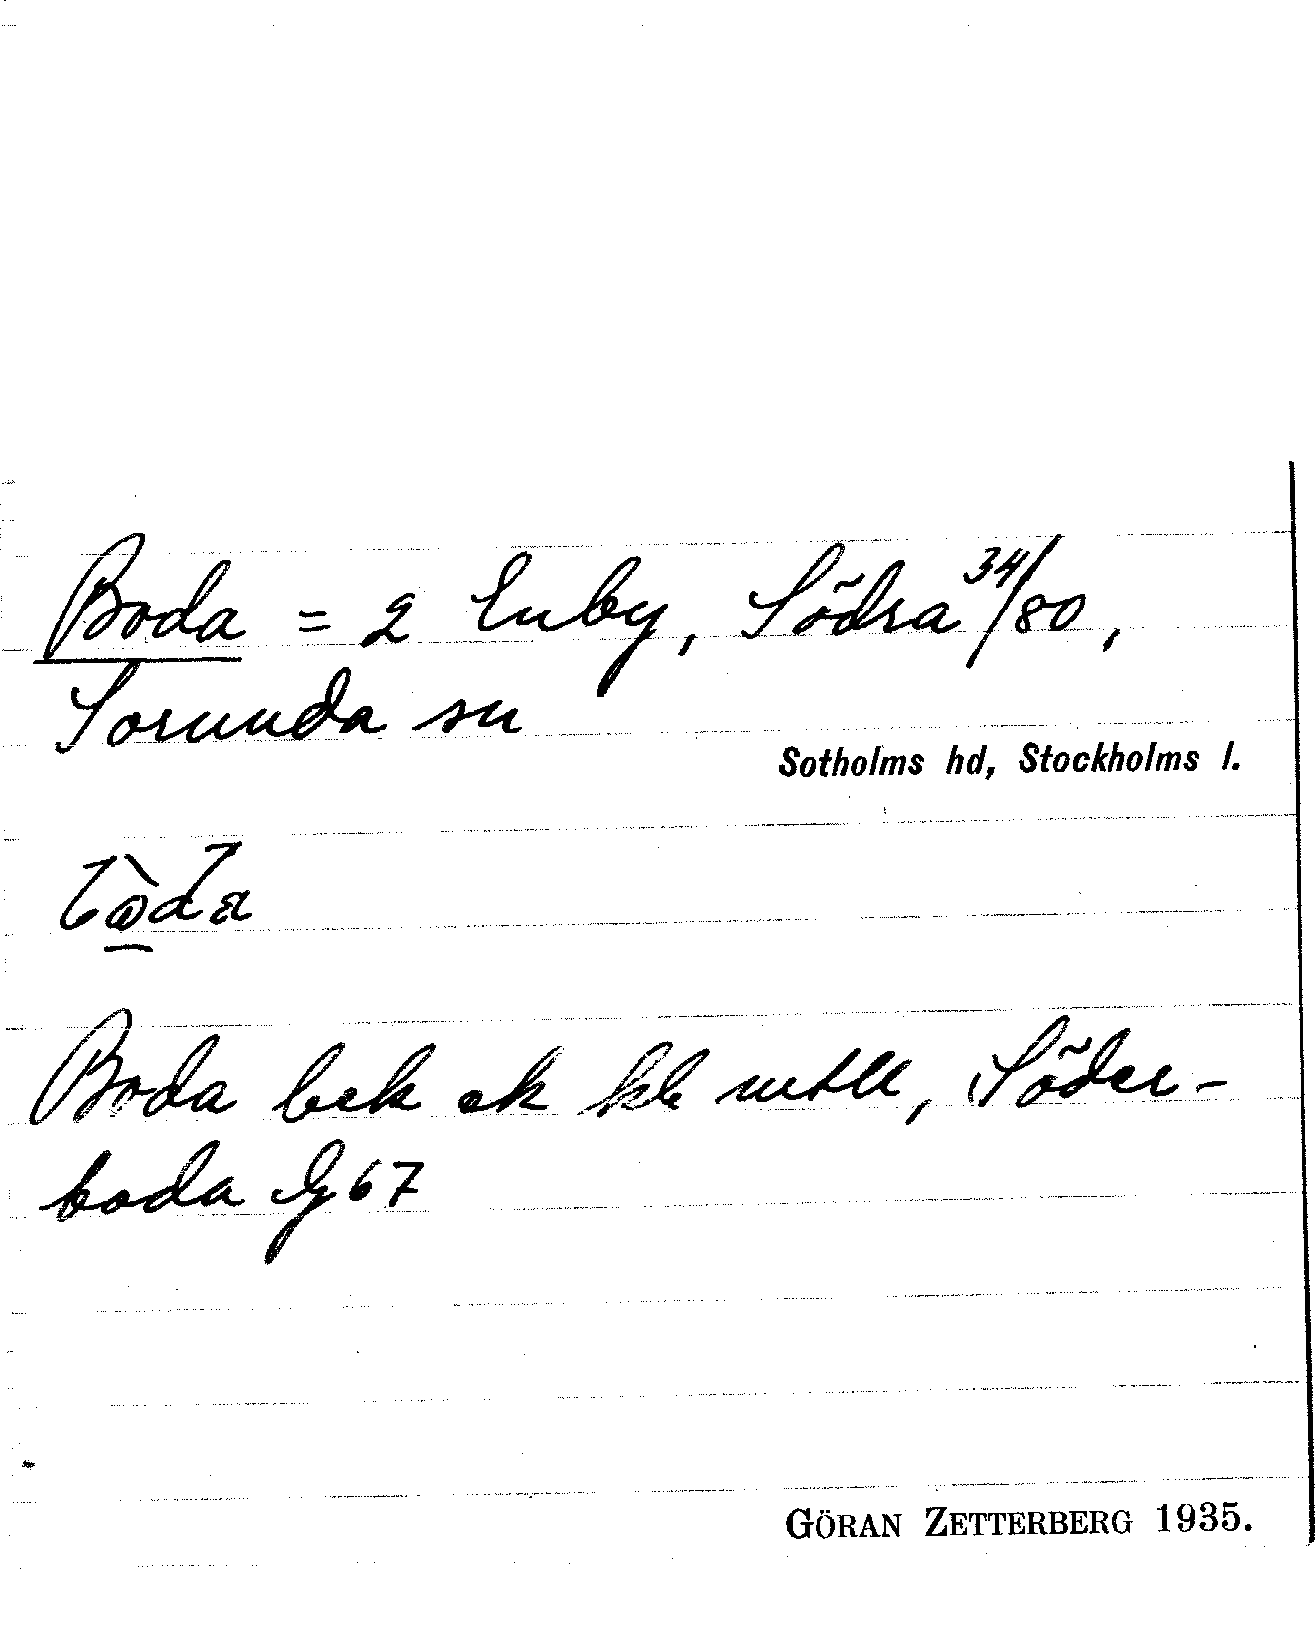 Boda = 2 Enby, Södra 34/80,
Sorunda sn
Sotholms hd, Stockholms l.
Boda bek ek kb mtll, Söder-
boda G 67
GÖRAN ZETTERBERG 1935.